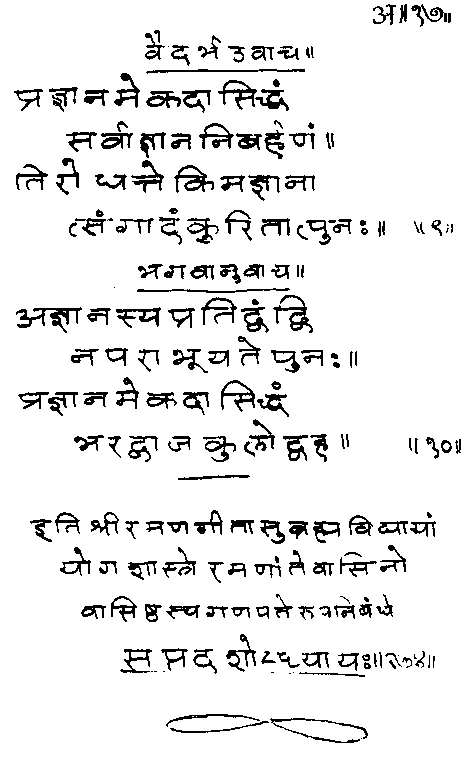 अ॥१७॥
वैदर्भ उवाच॥
प्रज्ञानमेकदासिद्धं
सर्वाज्ञाननिबर्हणं॥
तिरोधत्तेकिमज्ञाना
त्संगादंकुरितात्पुनः॥ ॥९॥
भगवानुवाच॥
अज्ञानस्यप्रतिद्वंद्वि
नपराभूयतेपुनः॥
प्रज्ञानमेकदासिद्धं
भरद्वाजकुलोद्वह॥ ॥१०॥
इतिश्रीरमणगीतासुब्रह्मविद्यायां
योगशास्त्रेरमणांतेवासिनो
वासिष्ठस्यगणपतेरुपनिबंधे
सप्तदशोऽध्यायः॥२७४॥